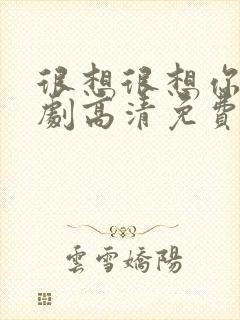 很想很想你
劇高清免費
雲雪嬌陽